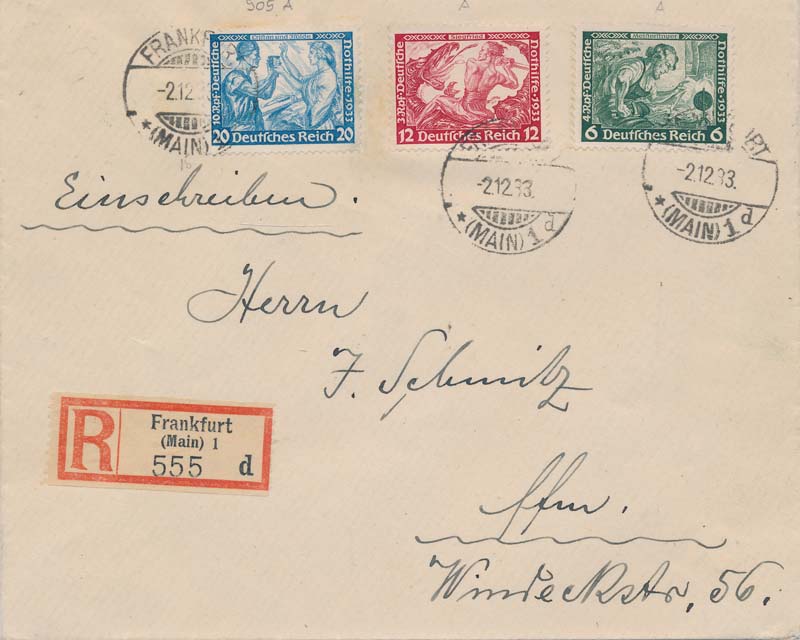 505 A
A
A
Tristan und Isolde
10.Rpf·Deutsche Nothilfe·1933
20 Deutsches Reich 20
Siegfried
3.Rpf·Deutsche Nothilfe·1933
12 Deutsches Reich 12
Meistersinger
4.Rpf·Deutsche Nothilfe·1933
6 Deutsches Reich 6
-2.12.33
* (MAIN)
-2.12.33.
* (MAIN) 1 d
-2.12.33.
* (MAIN) 1 d
Einschreiben.
Herrn
F. Schmitz
R
Frankfurt
(Main) 1
555 d
Ffm.
Windeckstr. 56.